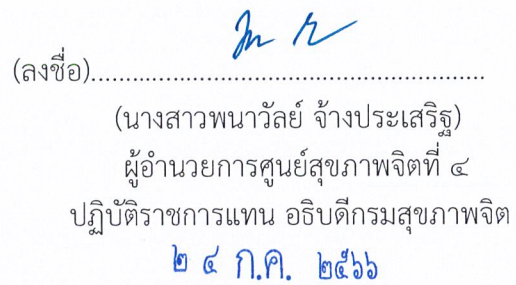 (ลงชื่อ)............................................................
(นางสาวพนาวัลย์ จ้างประเสริฐ)
ผู้อำนวยการศูนย์สุขภาพจิตที่ ๔
ปฏิบัติราชการแทน อธิบดีกรมสุขภาพจิต
๒ ๔ ก.ค. ๒๕๖๖